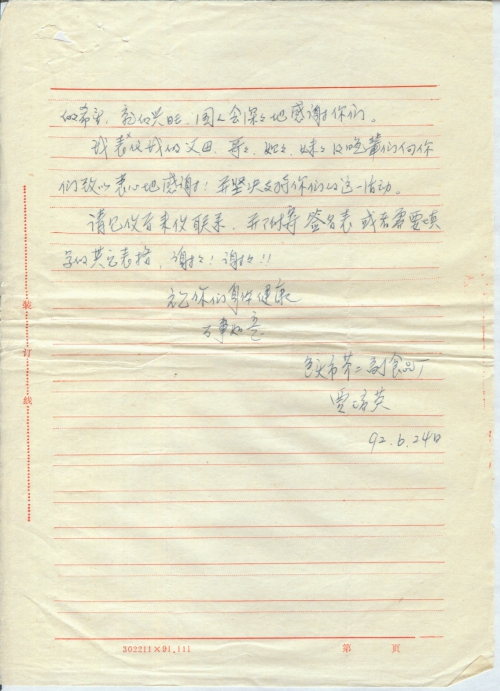 的希望，的兴旺，国人会深深地感谢你们。
我表代我的父母、哥哥、姐姐、妹妹及晚辈们向你
们致以衷心地感谢！并坚决支持你们的这一活动。
请已收百来份联系，并付寄签名表或若需要填
写的其它表格，谢谢！谢谢！！
祝你们身体健康
万事如意
包头市第二副食品厂
贾英
92.6.24日
装订线
302211×91.111
第 页